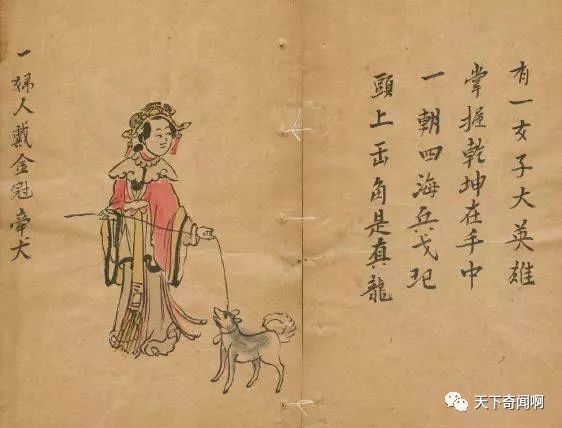 有一女子大英雄
掌握乾坤在手中
一朝四海兵戈
頭上缶角是真龍
一婦人戴金冠牵犬
天下奇闻啊